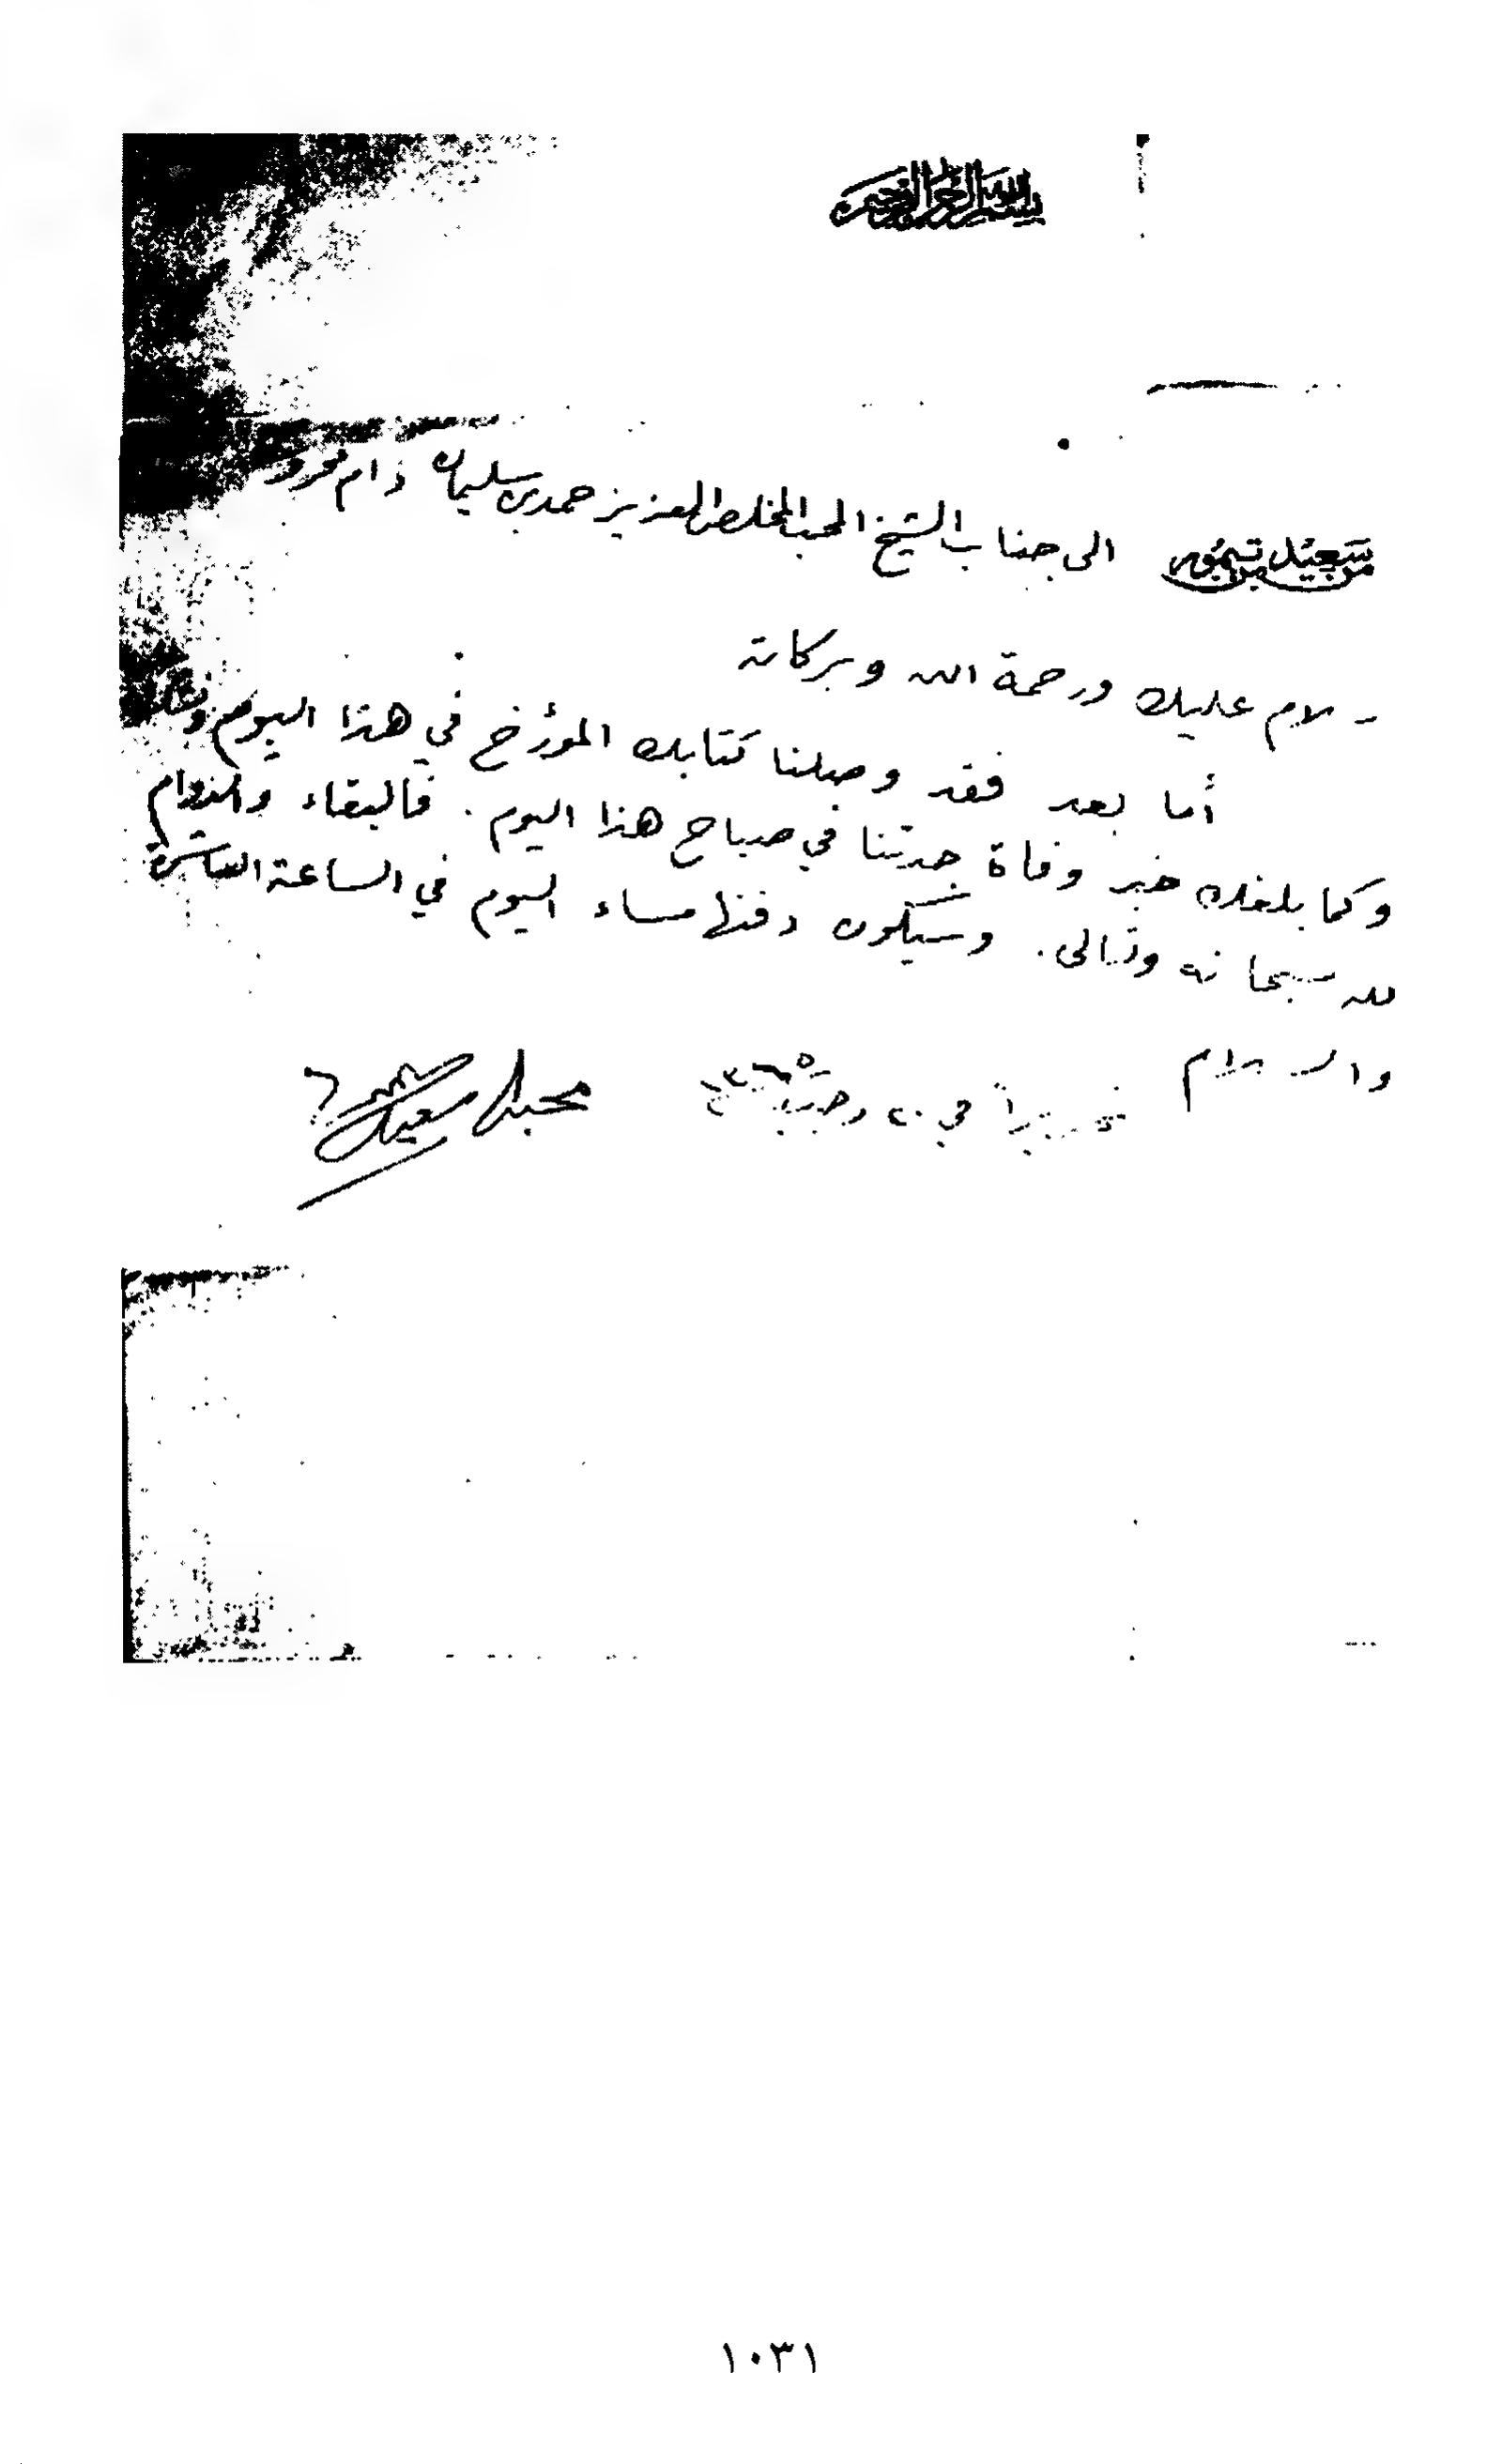 بسم الله الرحمن الرحيم
من سعيد بن تيمور الى جناب الشيخ المحب المخلص العزيز حمد بن سليمان دام محروسا
سلام عليك ورحمة الله وبركاته
أما بعد فقد وصلنا كتابك المؤرخ في هذا اليوم
وكما بلغك خبر وفاة جدتنا في صباح هذا اليوم. فالبقاء والدوام
لله سبحانه وتعالى. وسيكون دفنها مساء اليوم في الساعة العاشرة
والسلام تحريراً في ٢٠ رجب ١٣٦٥
محبك سعيد بن تيمور
١٠٣١